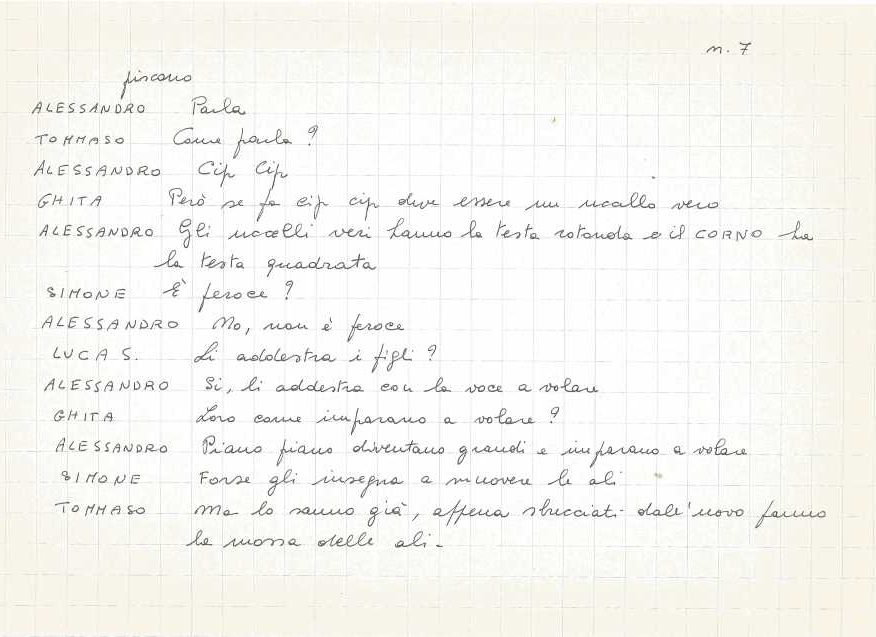 n. 7
piscano
ALESSANDRO Parla
TOMMASO Come parla ?
ALESSANDRO Cip Cip
GHITA Però se fa cip cip deve essere un uccello vero
ALESSANDRO Gli uccelli veri hanno la testa rotonda e il CORNO ha
la testa quadrata
SIMONE È feroce ?
ALESSANDRO No, non è feroce
LUCA S. Li addestra i figli ?
ALESSANDRO Si, li addestra con la voce a volare
GHITA Loro come imparano a volare ?
ALESSANDRO Piano piano diventano grandi e imparano a volare
SIMONE Forse gli insegna a muovere le ali
TOMMASO Ma lo sanno già, appena sbucciati dall'uovo fanno
la mossa delle ali -